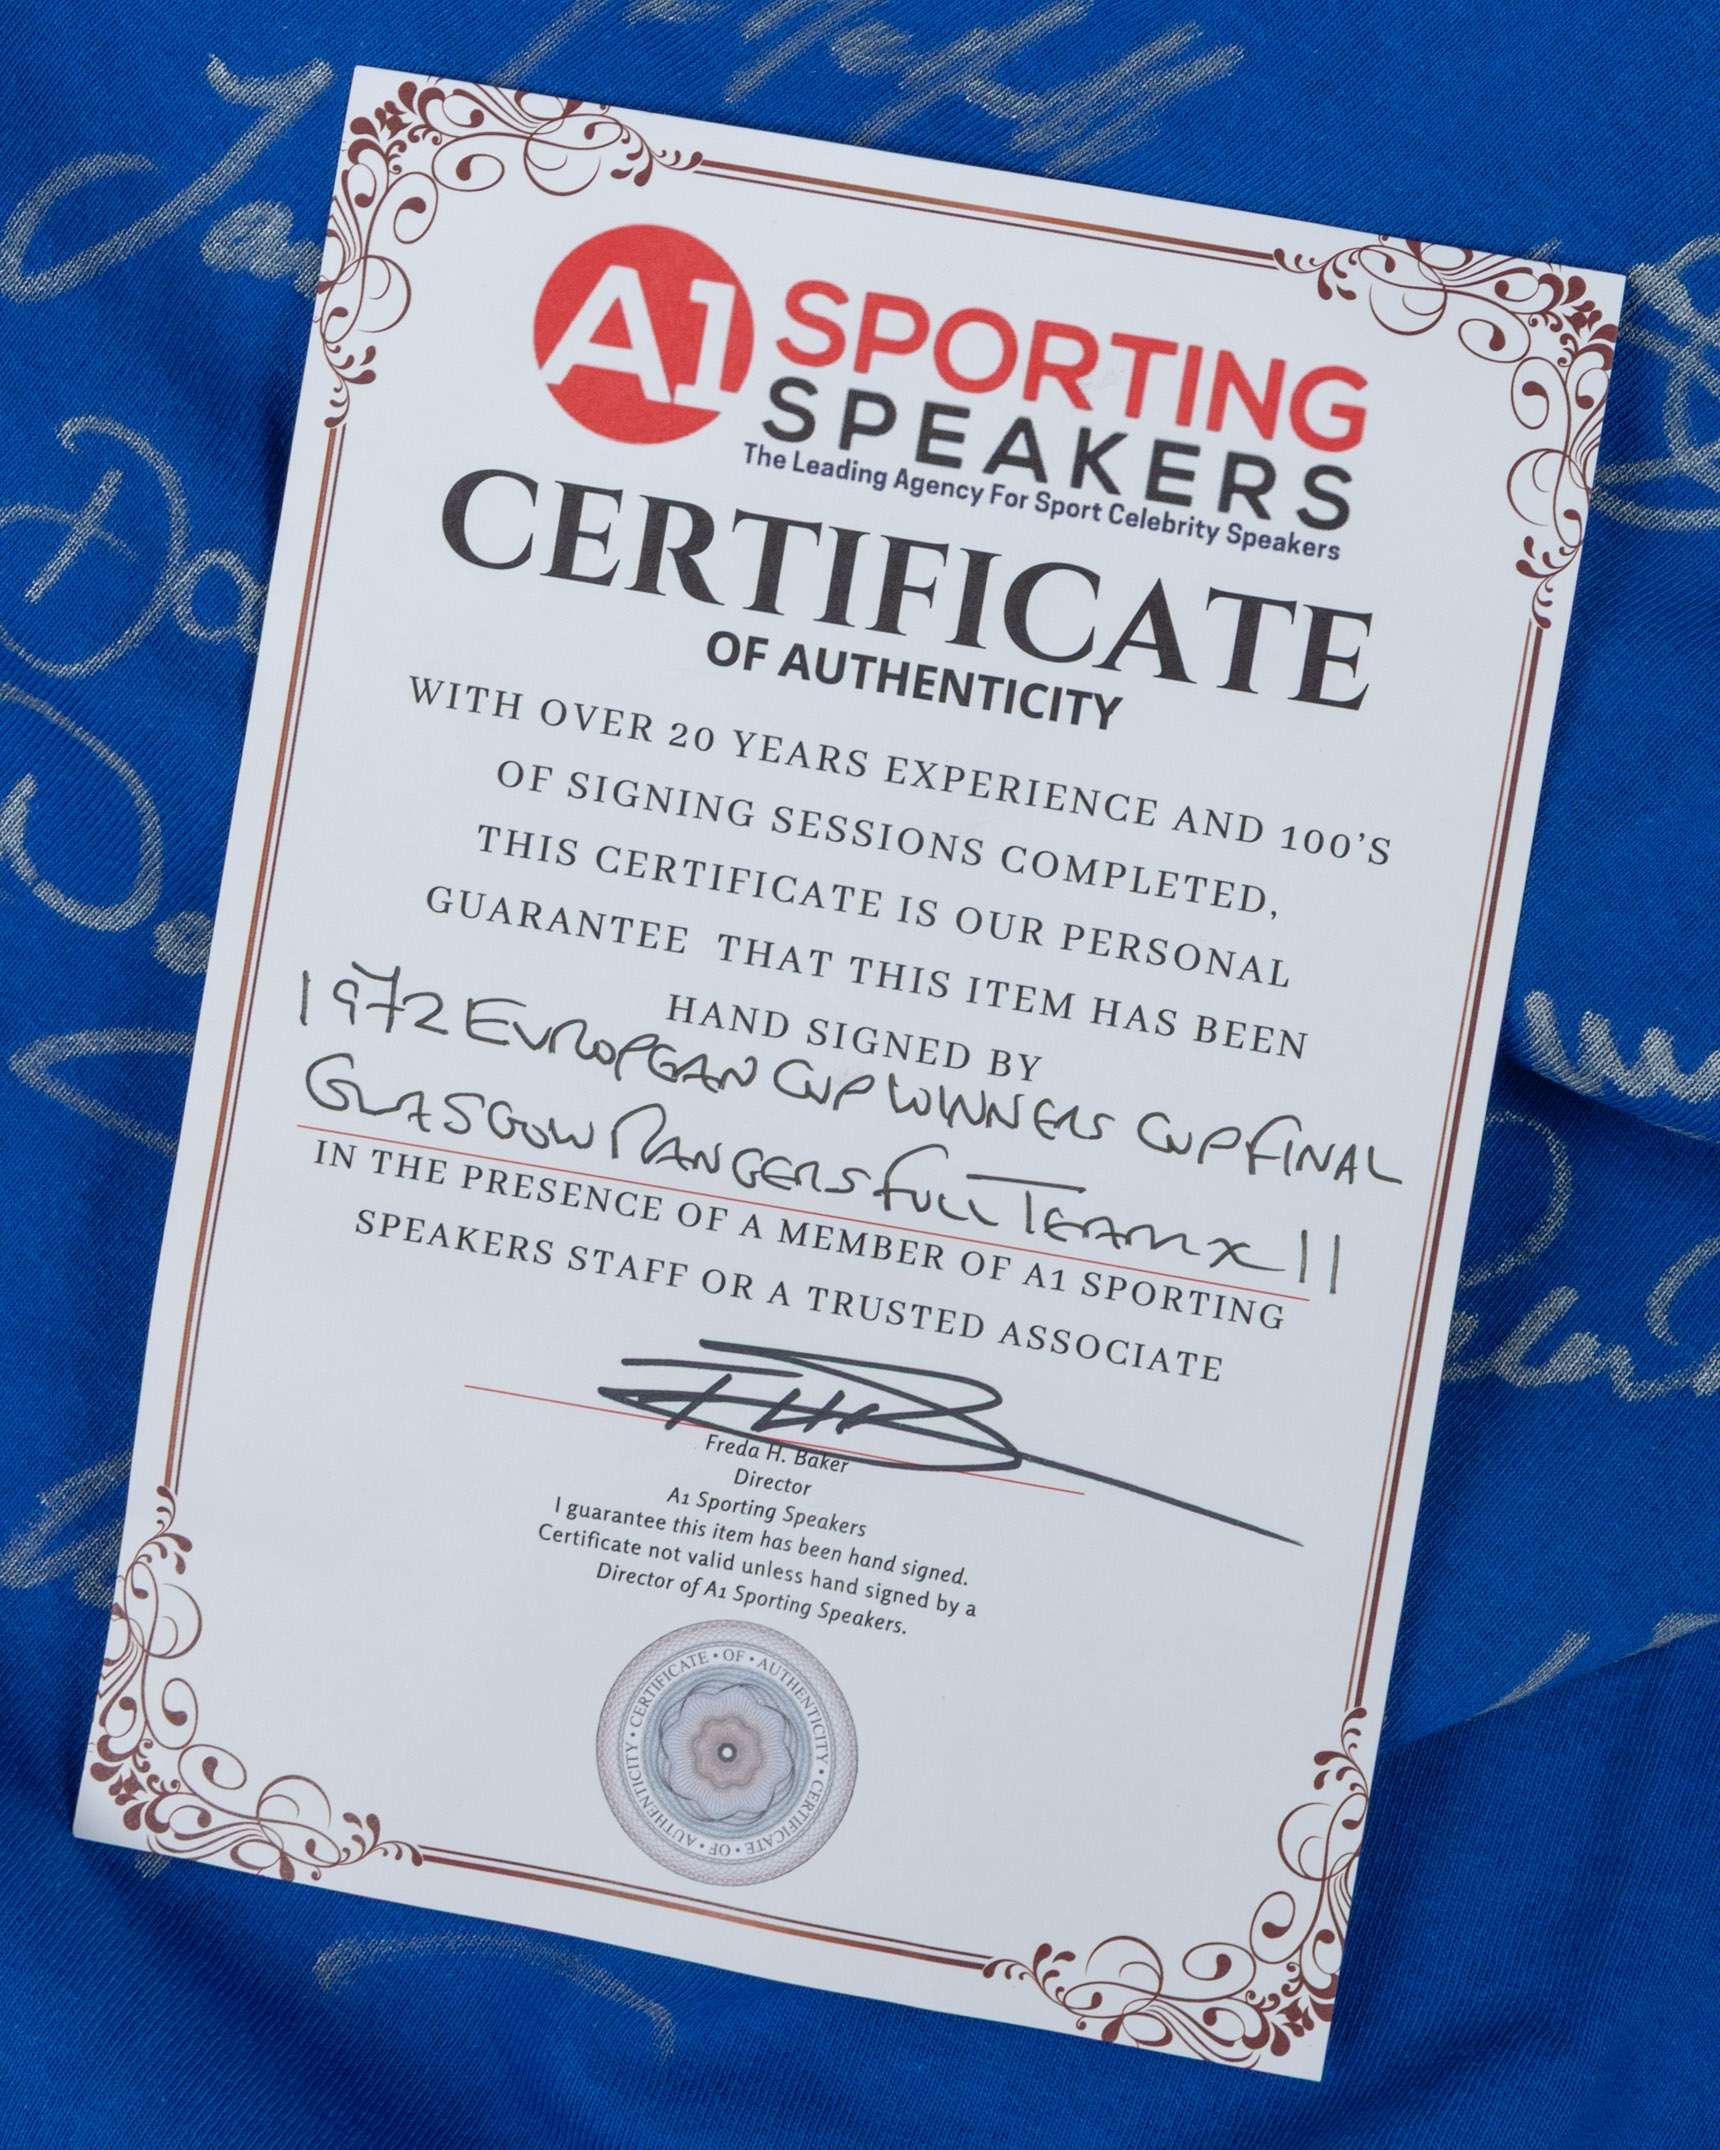 A1 SPORTING
SPEAKERS
The Leading Agency For Sport Celebrity Speakers
CERTIFICATE
OF AUTHENTICITY
WITH OVER 20 YEARS EXPERIENCE AND 100'S
OF SIGNING SESSIONS COMPLETED,
THIS CERTIFICATE IS OUR PERSONAL
GUARANTEE THAT THIS ITEM HAS BEEN
HAND SIGNED BY
1972 EUROPEAN CUP WINNERS CUP FINAL
GLASGOW RANGERS FULL TEAM x 11
IN THE PRESENCE OF A MEMBER OF A1 SPORTING
SPEAKERS STAFF OR A TRUSTED ASSOCIATE
FHB
Freda H. Baker
Director
A1 Sporting Speakers
I guarantee this item has been hand signed.
Certificate not valid unless hand signed by a
Director of A1 Sporting Speakers.
CERTIFICATE • OF • AUTHENTICITY • CERTIFICATE • OF • AUTHENTICITY •